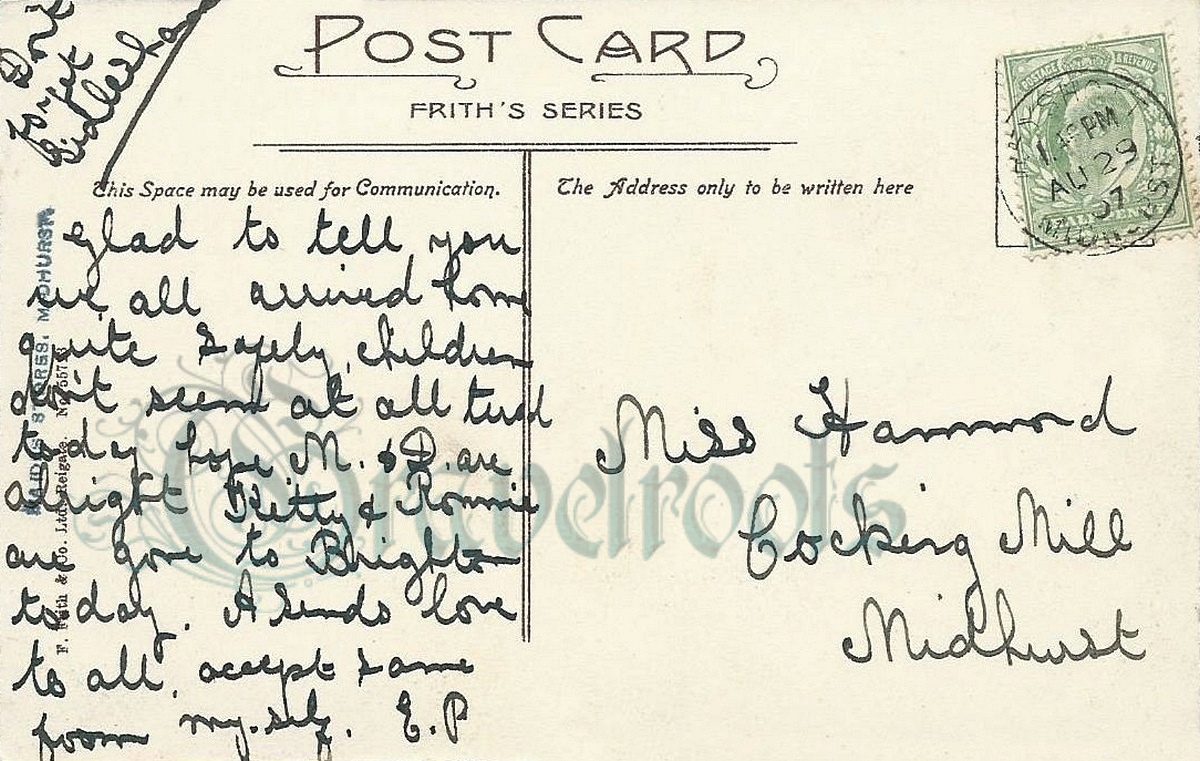 Don't
forget
Sidlesham
POST CARD
FRITH'S SERIES
This Space may be used for Communication.
The Address only to be written here
PM
AU 29
07
MIDHURST
POSTAGE & REVENUE
HALFPENNY
glad to tell you
we all arrived home
quite safely, children
don't seem at all tired
to day hope M. & D. are
alright Kitty & Ronnie
are gone to Brighton
to day. A sends love
to all, accept same
from my.self. E.P
Miss Hammond
Cocking Mill
Midhurst
STORES, MIDHURST
F. Frith & Co. Ltd., Reigate. No.
Gravelroots